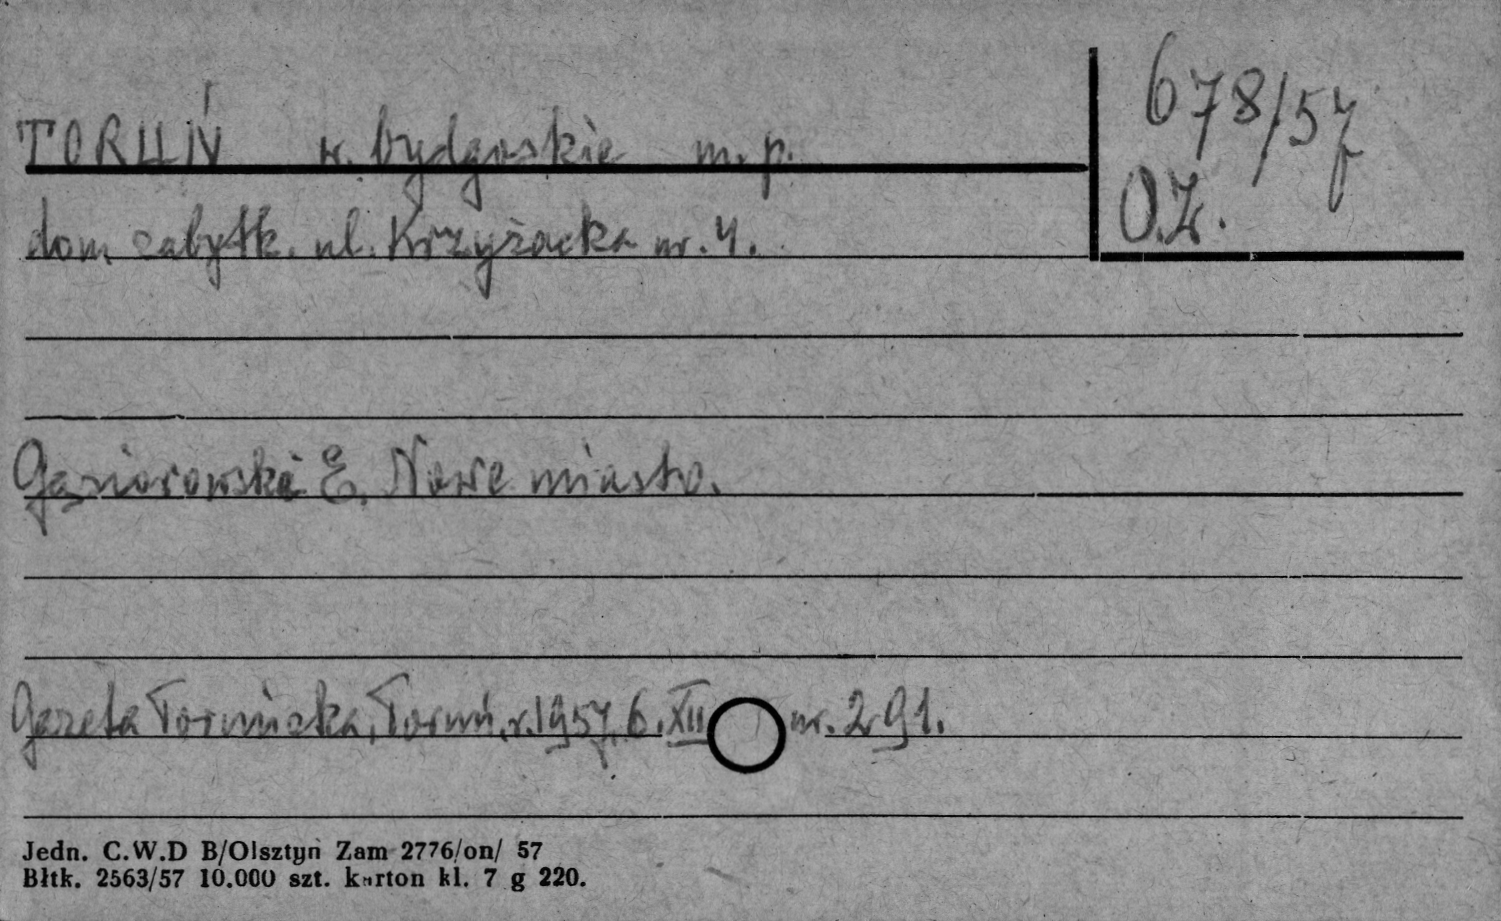 TORUŃ w. bydgoskie m. p.
678/57
O.Z.
dom zabytk. ul. Krzyżacka nr. 4.
Gąsiorowski E. Nowe miasto.
Gazeta Toruńska, Toruń, r. 1957, 6. XII nr. 291.
Jedn. C.W.D B/Olsztyn Zam 2776/on/ 57
Błtk. 2563/57 10.000 szt. karton kl. 7 g 220.